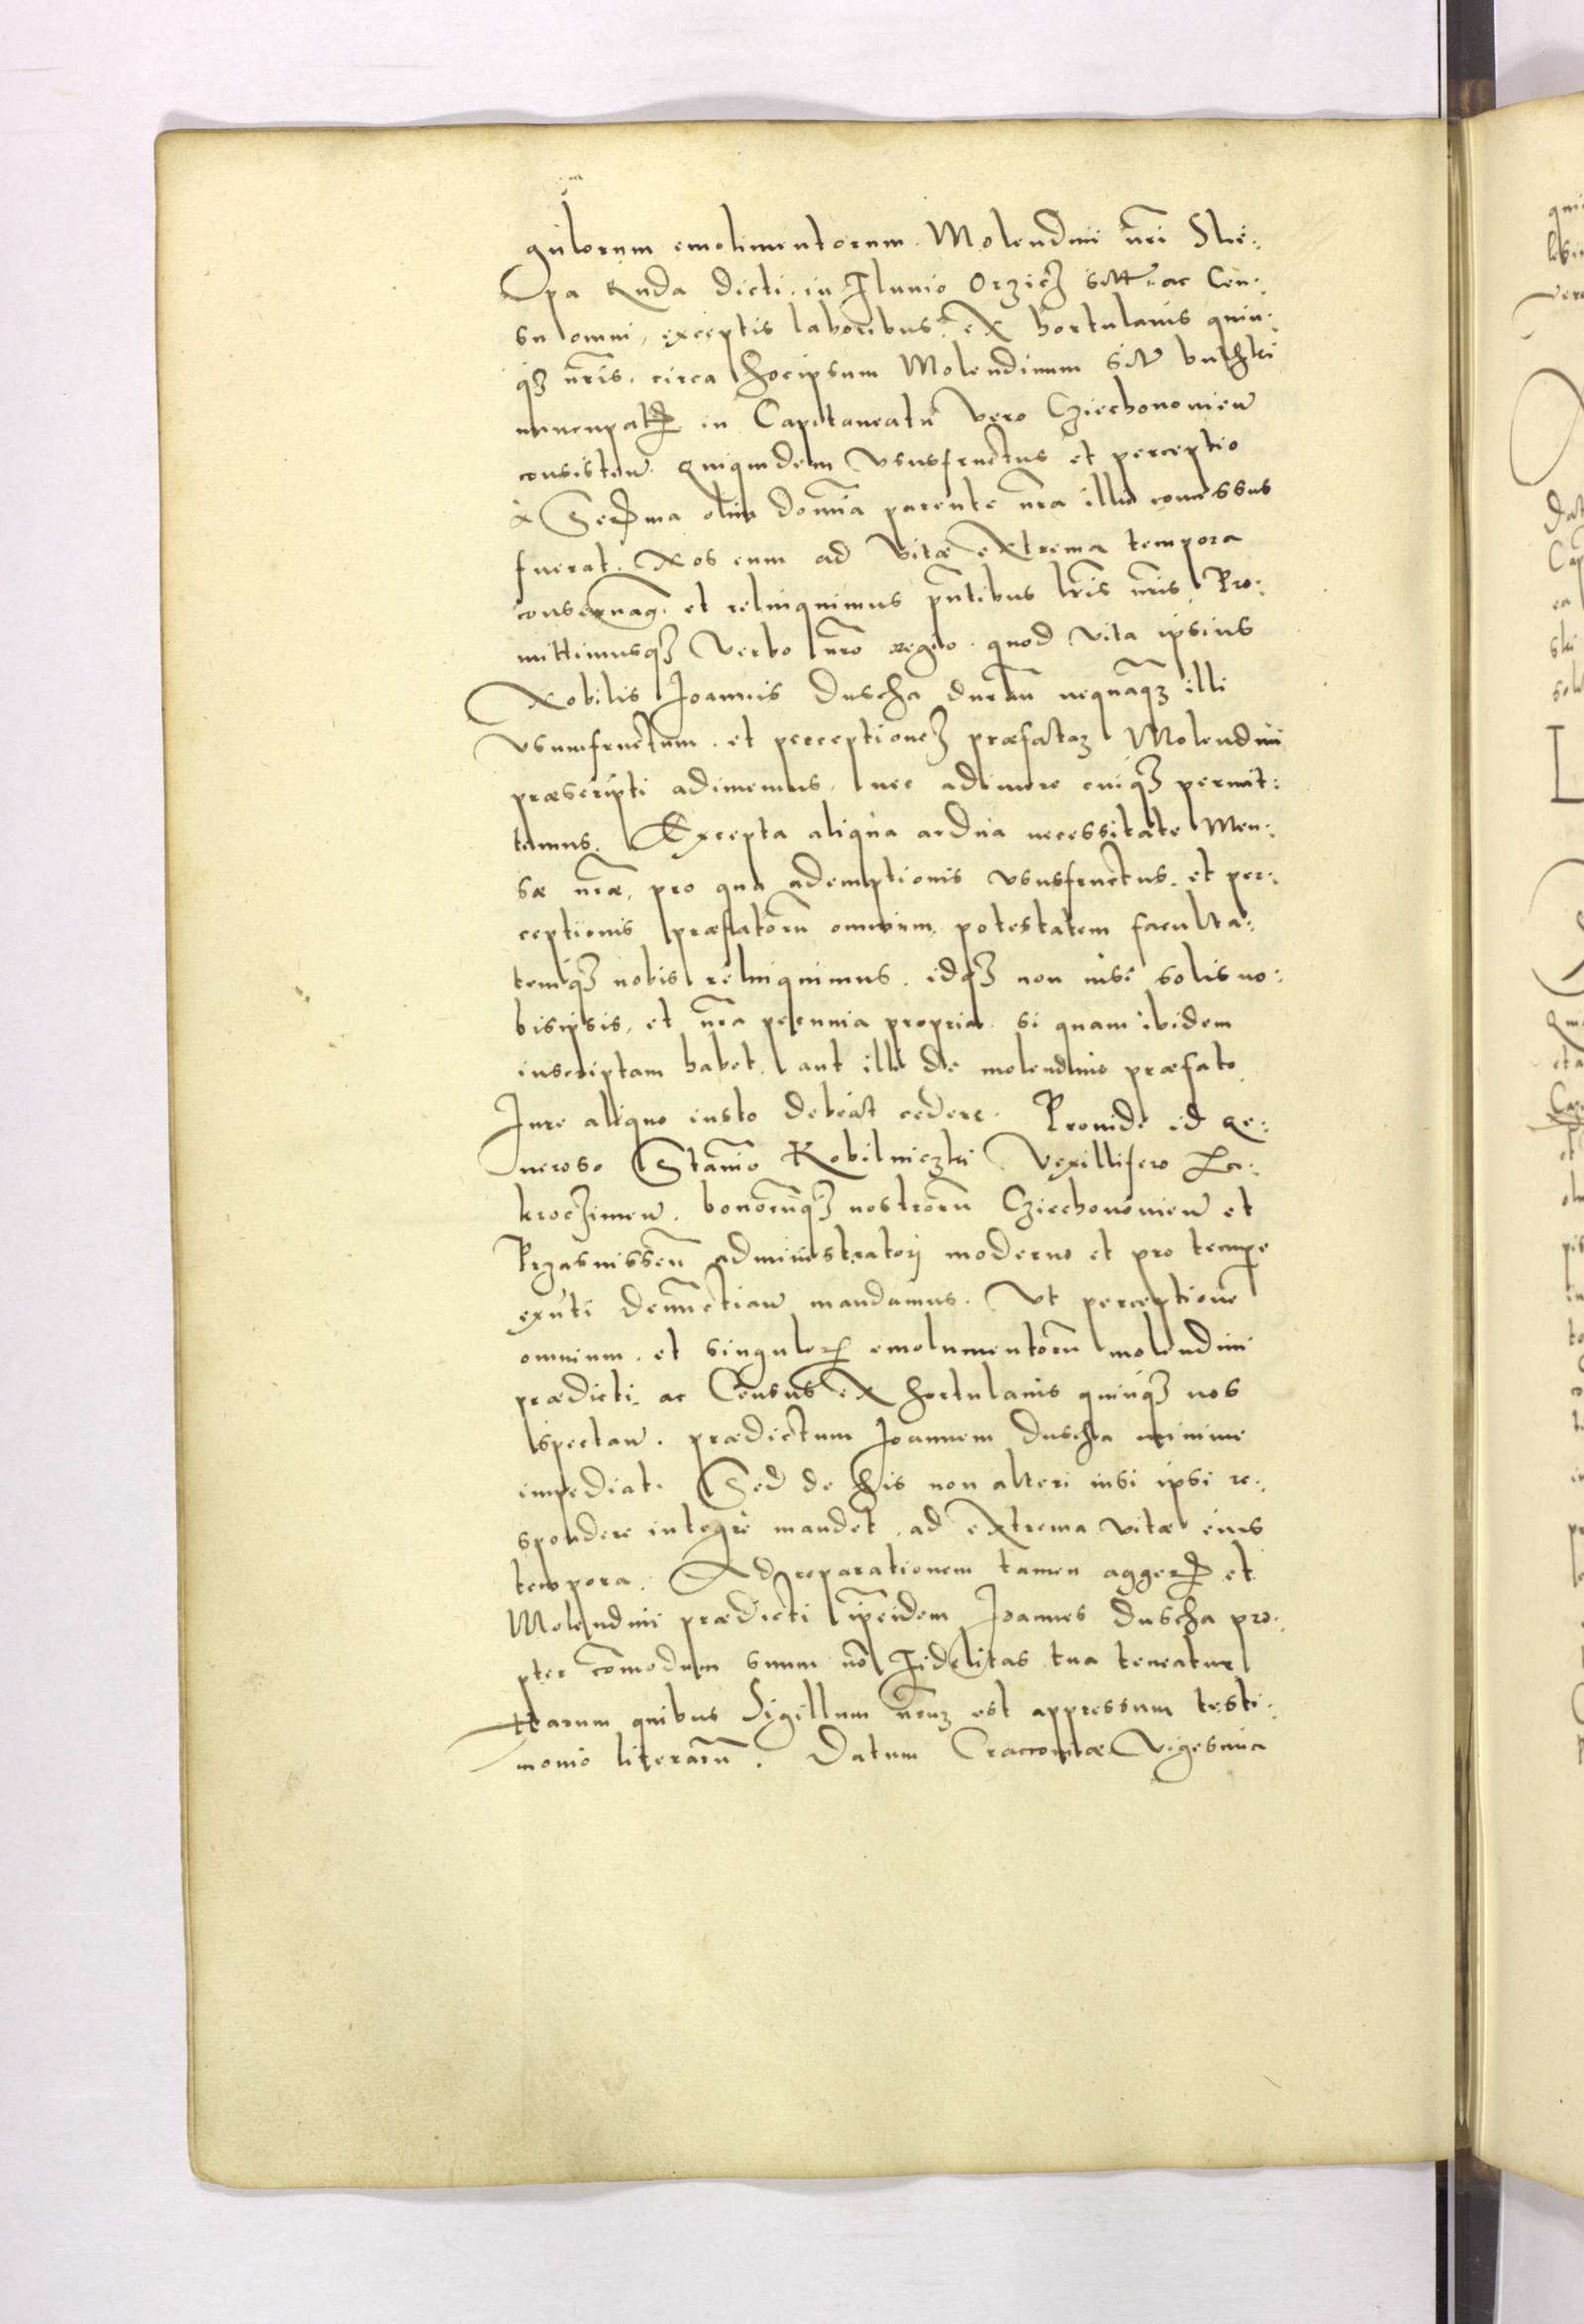 gulorum emolimentorum Molendini nri Slie:
pa Ruda dicti in fluuio Orzicz sitt: ac Cen:
su omni, exceptis laboribus ex hortulanis quin:
qz nris, circa hocipsum Molendinum sitt
nuncupat in Capitaneatu vero Cziechonouien
consisten. Quiquidem vsusfructus et perceptio
a Serma olim domina parente nra illi concessus
fuerat. Nos eum ad vitae extrema tempora
conseruam. et relinquimus pntibus lris nris, Pro:
mittimusqz verbo nro regio quod vita ipsius
Nobilis Joannis Duscha duran nequaqz illi
vsumfructum et perceptionez praefatoz Molendini
praescripti adimemus, nec adimere cuiqz permit:
temus. Excepta aliqua ardua necessitate Men:
sae nrae, pro qua ademptionis vsusfructus et per:
ceptionis praefatoru omnium potestatem faculta:
temqz nobis relinquimus, idqz non nisi solis no:
bisipsis, et nra pecunia propria si quam ibidem
inscriptam habet aut illi de molendino praefato
Jure aliquo iusto debeat cedere. Prouide id Ge:
neroso Stanio Kobilniczki Vexillifero Za:
kroczimen. bonoruqz nostroru Cziechonouien et
Przasnissen administratorj moderno et pro tempe
exnti demandan mandamus. Vt perceptione
omnium et singulor emolumentoru molendini
praedicti ac Census ex hortulanis quinqz nos
spectan. praedictum Joannem Duscha minime
impediat. Sed de his non alteri nisi ipsi re:
spondere integre mandet, ad extrema vitae eius
tempora. Ad reparationem tamen agger et
Molendini praedicti ipseidem Joannes Duscha pro:
pter comodum suum non Fidelitas tua teneatur
Harum quibus Sigillum nruz est appressum testi:
monio literaru. Datum Cracouiae Vigesima